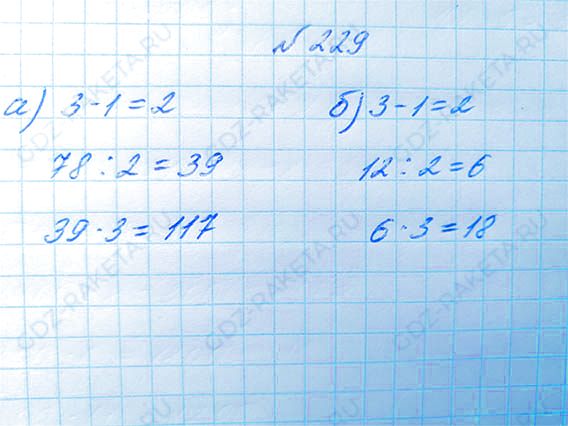 № 229
а) 3 - 1 = 2
78 : 2 = 39
39 · 3 = 117
б) 3 - 1 = 2
12 : 2 = 6
6 · 3 = 18
GDZ-RAKETA.RU
GDZ-RAKETA.RU
GDZ-RAKETA.RU
GDZ-RAKETA.RU
GDZ-RAKETA.RU
GDZ-RAKETA.RU